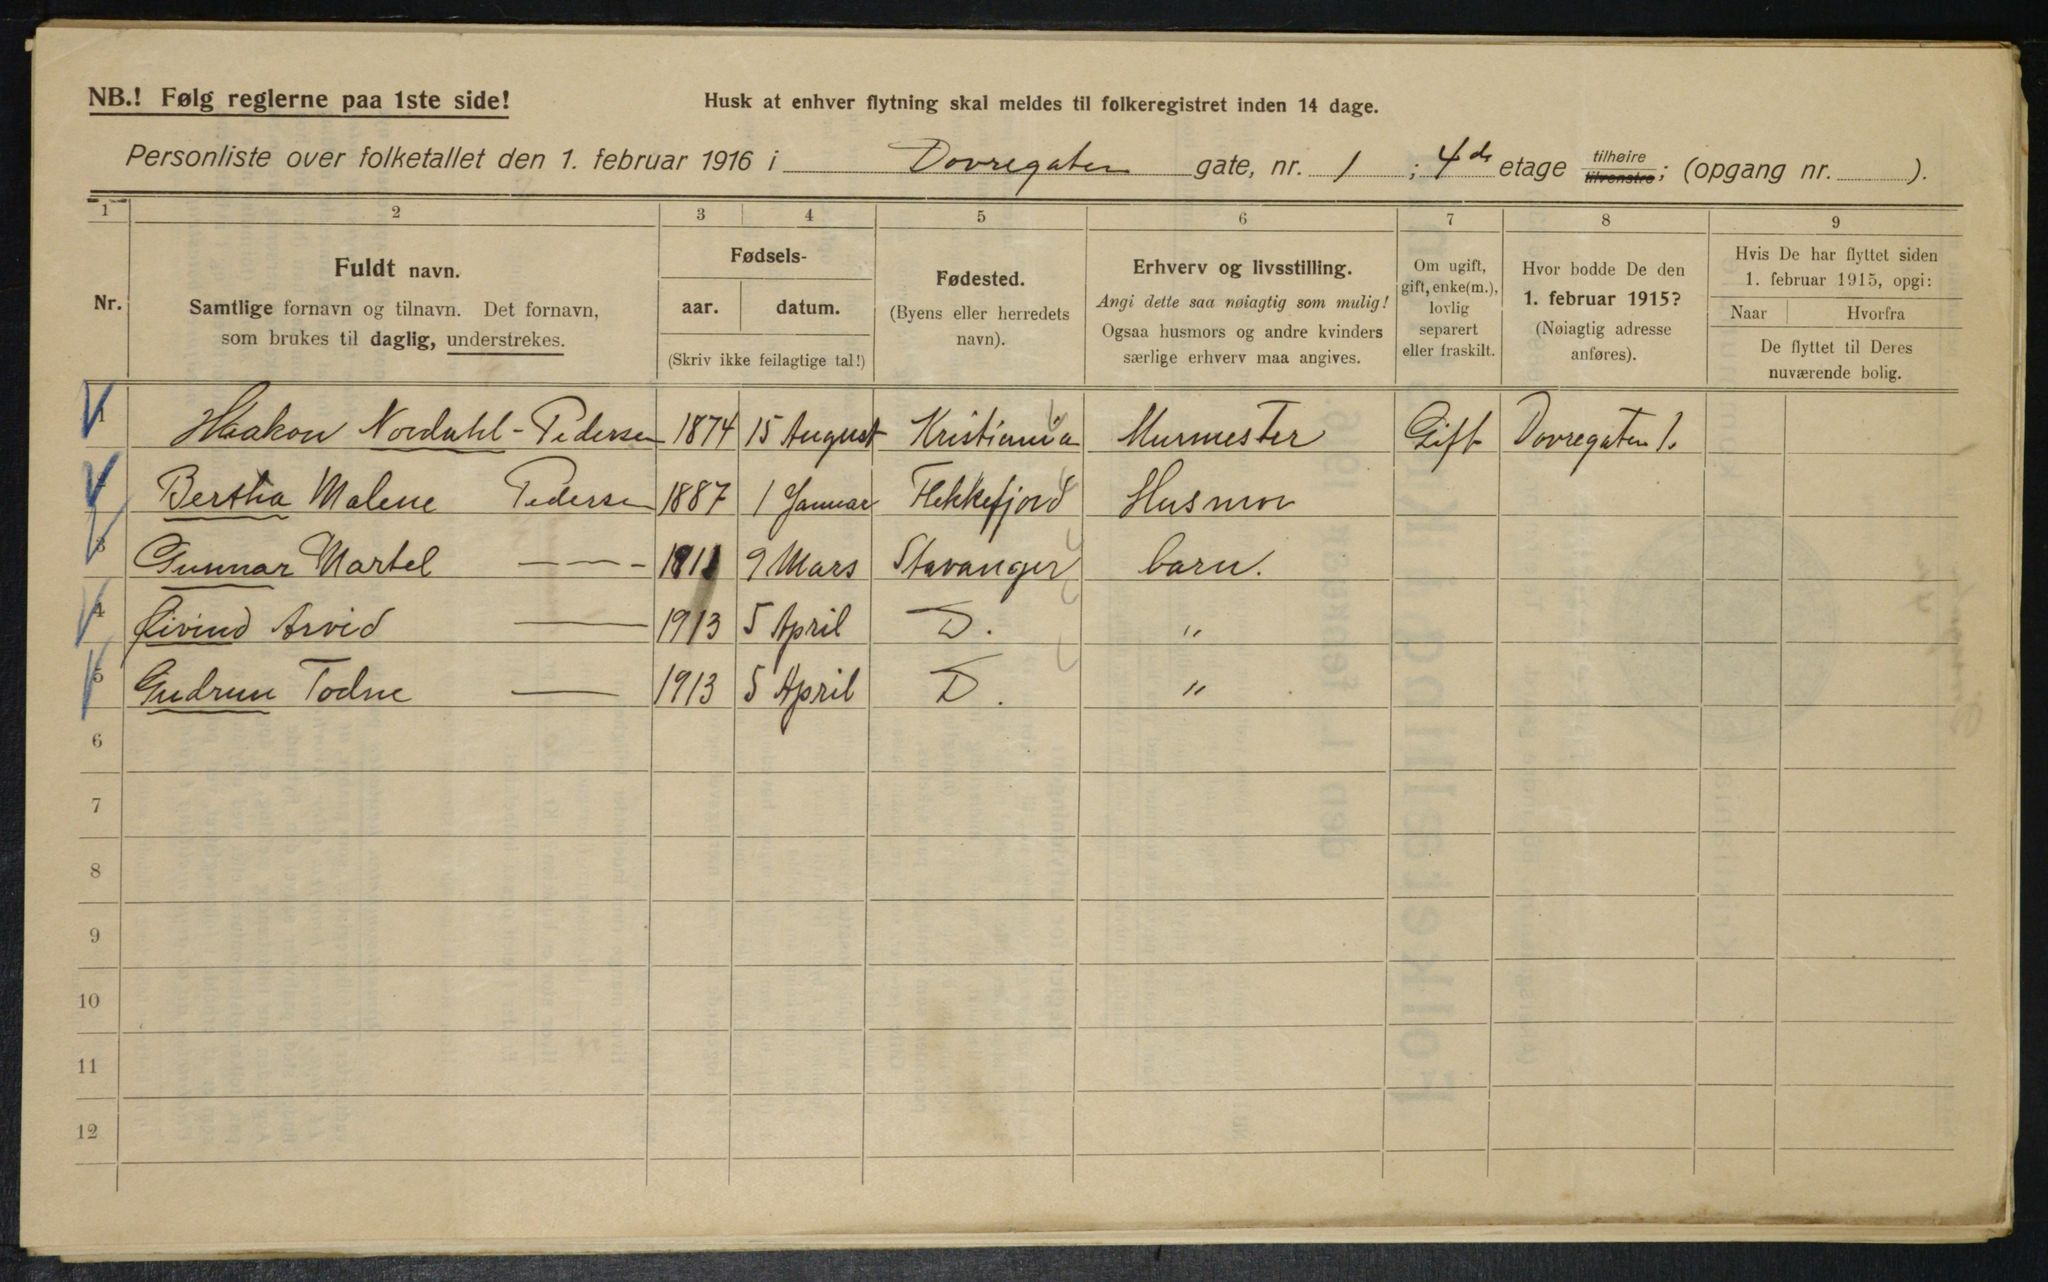 NB.! Følg reglerne paa 1ste side!
Husk at enhver flytning skal meldes til folkeregistret inden 14 dage.
Personliste over folketallet den 1. februar 1916 i Dovregaten gate, nr. 1 ; 4de etage tilhøire tilvenstre; (opgang nr. ).
1 2 3 4 5 6 7 8 9
Nr.
Fuldt navn.
Samtlige fornavn og tilnavn. Det fornavn,
som brukes til daglig, understrekes.
Fødsels-
aar. datum.
(Skriv ikke feilagtige tal!)
Fødested.
(Byens eller herredets
navn).
Erhverv og livsstilling.
Angi dette saa nøiagtig som mulig!
Ogsaa husmors og andre kvinders
særlige erhverv maa angives.
Om ugift,
gift, enke(m.),
lovlig
separert
eller fraskilt.
Hvor bodde De den
1. februar 1915?
(Nøiagtig adresse
anføres).
Hvis De har flyttet siden
1. februar 1915, opgi:
Naar Hvorfra
De flyttet til Deres
nuværende bolig.
1 Haakon Nordahl-Pedersen 1874 15 August Kristiania Murmester Gift Dovregaten 1.
Bertha Malene Pedersen 1887 1 Januar Flekkefjord Husmor
3 Gunnar Martel — — - 1911 9 Mars Stavanger barn.
4 Øivind Arvid — 1913 5 April D. "
5 Gudrun Todne — 1913 5 April D. "
6
7
8
9
10
11
12